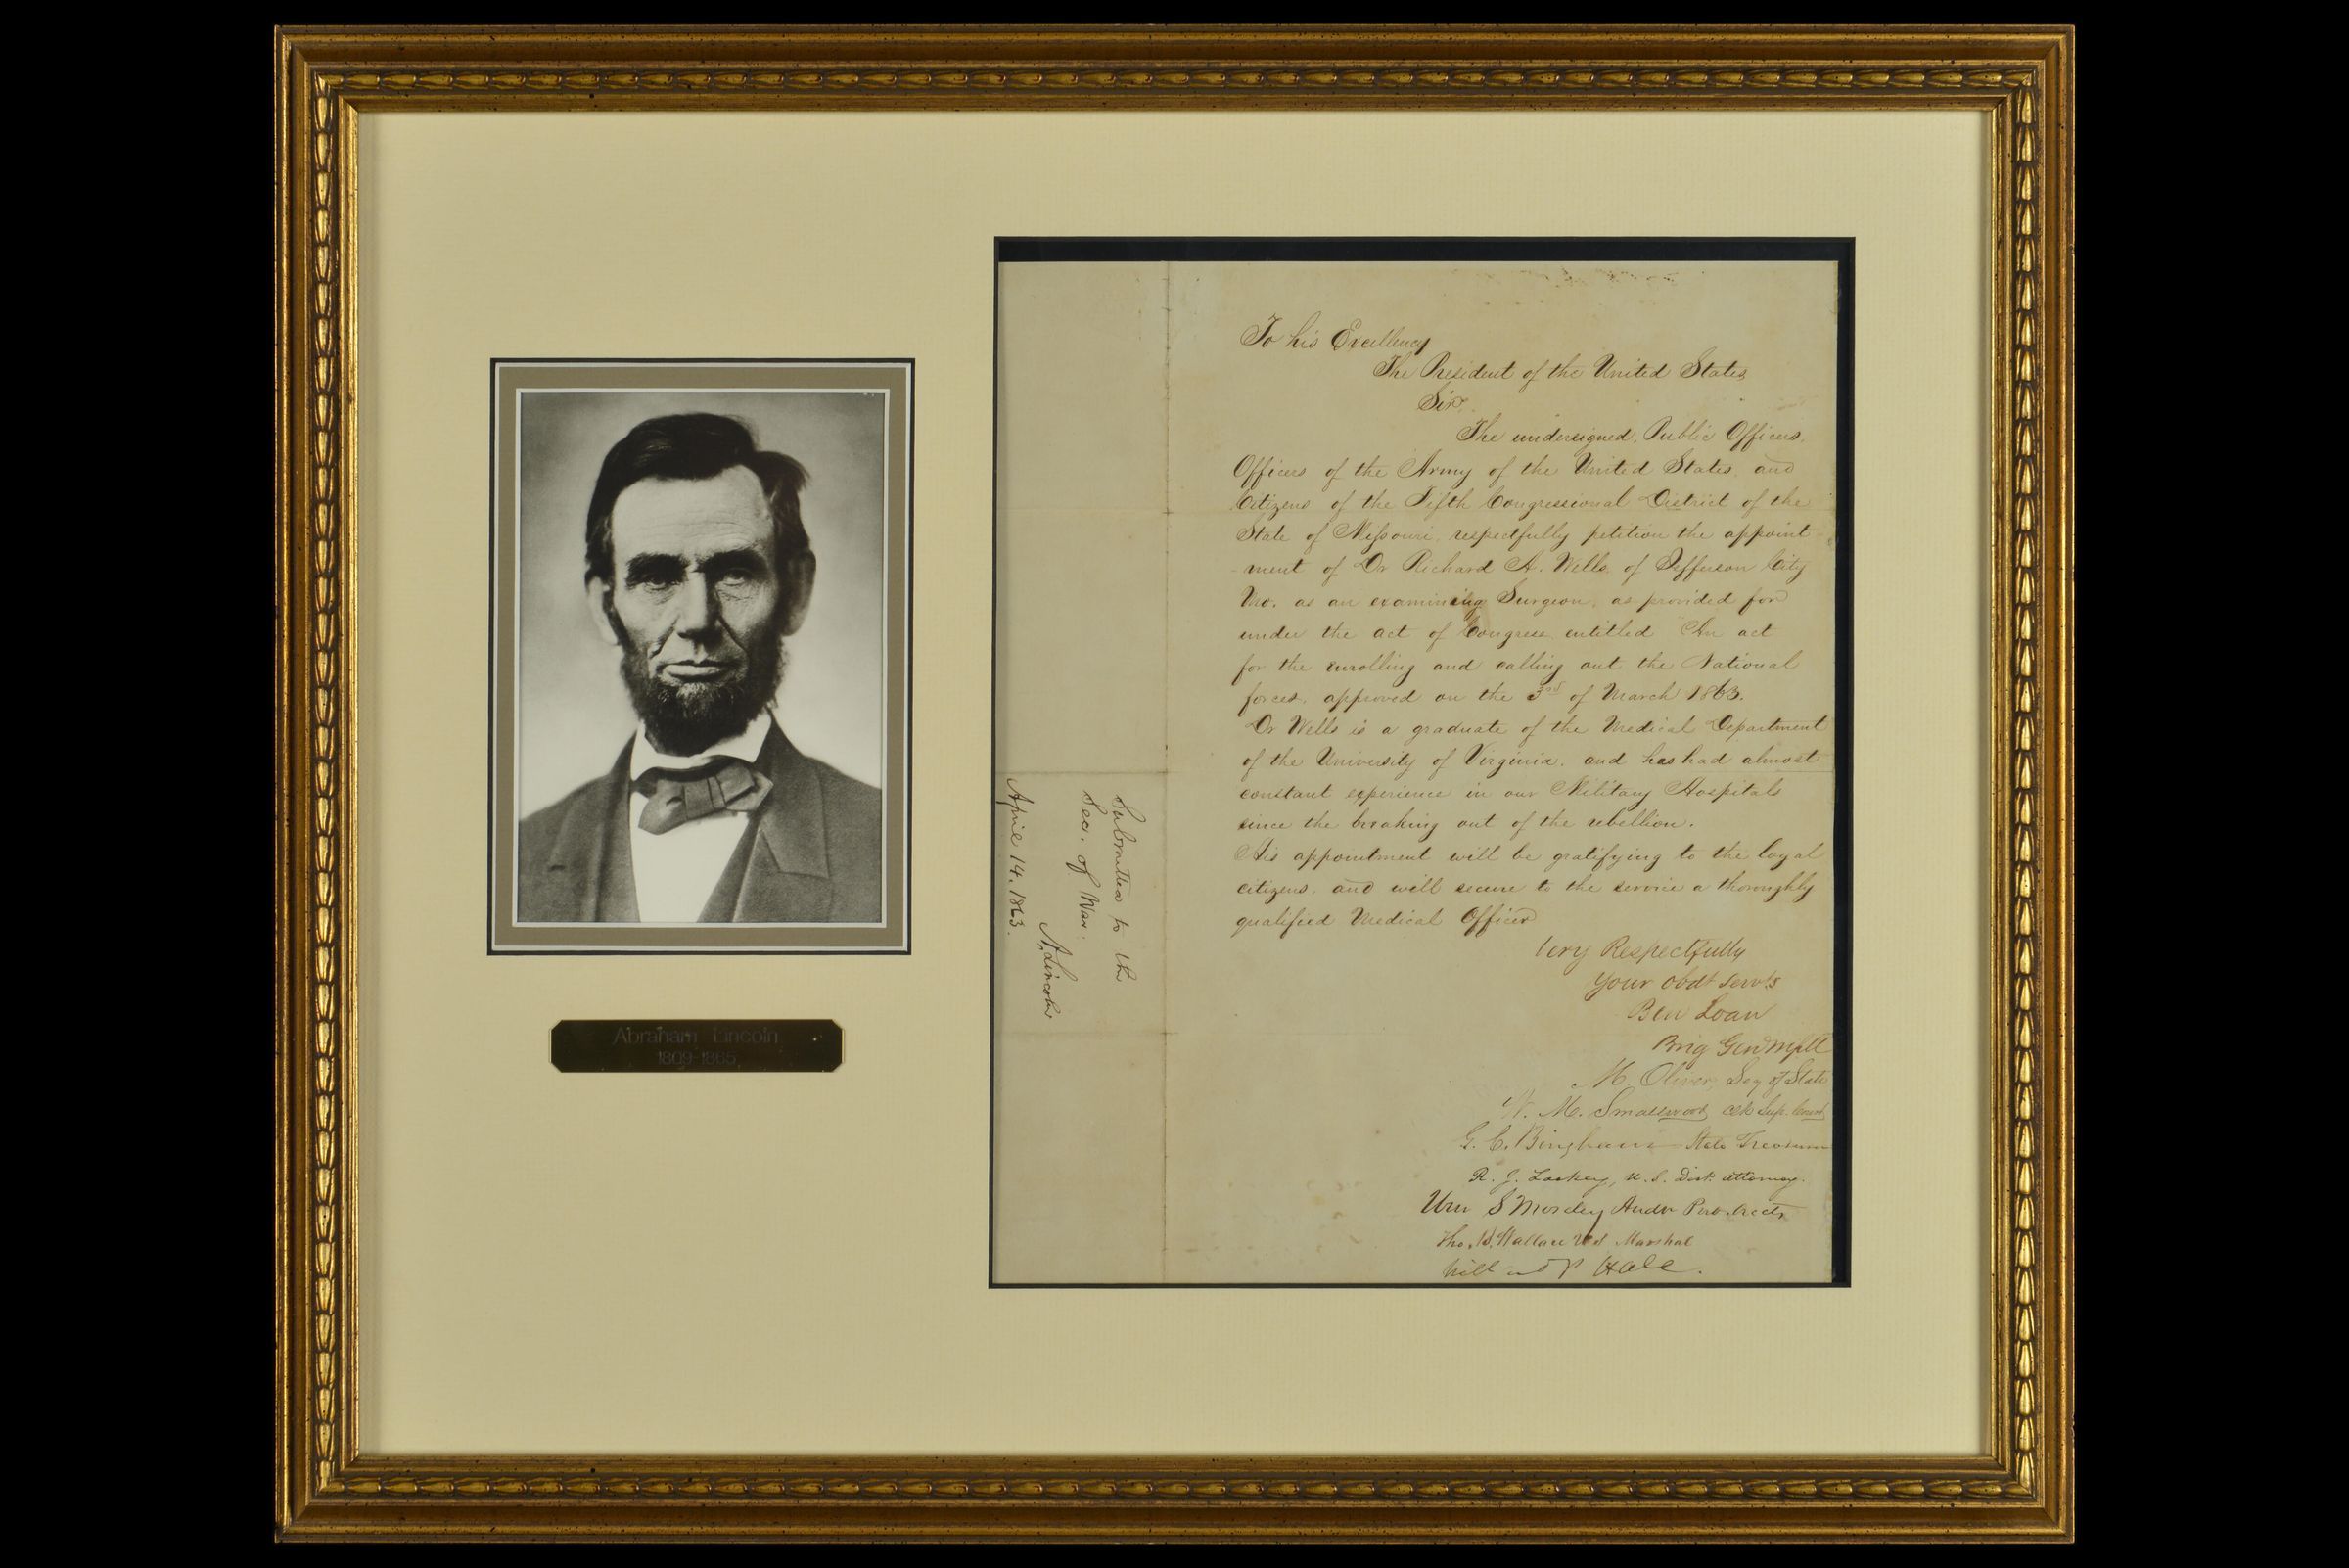 Abraham Lincoln
1809-1865
To his Excellency
The President of the United States
Sir
The undersigned, Public Officers,
Officers of the Army of the United States, and
Citizens of the Fifth Congressional District of the
State of Missouri, respectfully petition the appoint-
-ment of Dr Richard A. Wells, of Jefferson City
Mo. as an examining Surgeon, as provided for
under the act of Congress, entitled An act
for the enrolling and calling out the National
forces, approved on the 3rd of March 1863.
Dr Wells is a graduate of the Medical Department
of the University of Virginia, and has had almost
constant experience in our Military Hospitals
since the breaking out of the rebellion.
His appointment will be gratifying to the loyal
citizens, and will secure to the service a thoroughly
qualified Medical Officer
Very Respectfully
Your obdt servts
Ben Loan
Brig Gen
M. Oliver, Secy of State
W. M. Smallwood, Clk Sup. Court
G. C. Bingham State Treasurer
R. J. Lackey, U.S. Dist. Attorney.
Wm S Moseley Audr
Tho. B. Wallace U S Marshal
Hall.
Submitted to the
Sec. of War.
A. Lincoln
April 14, 1863.